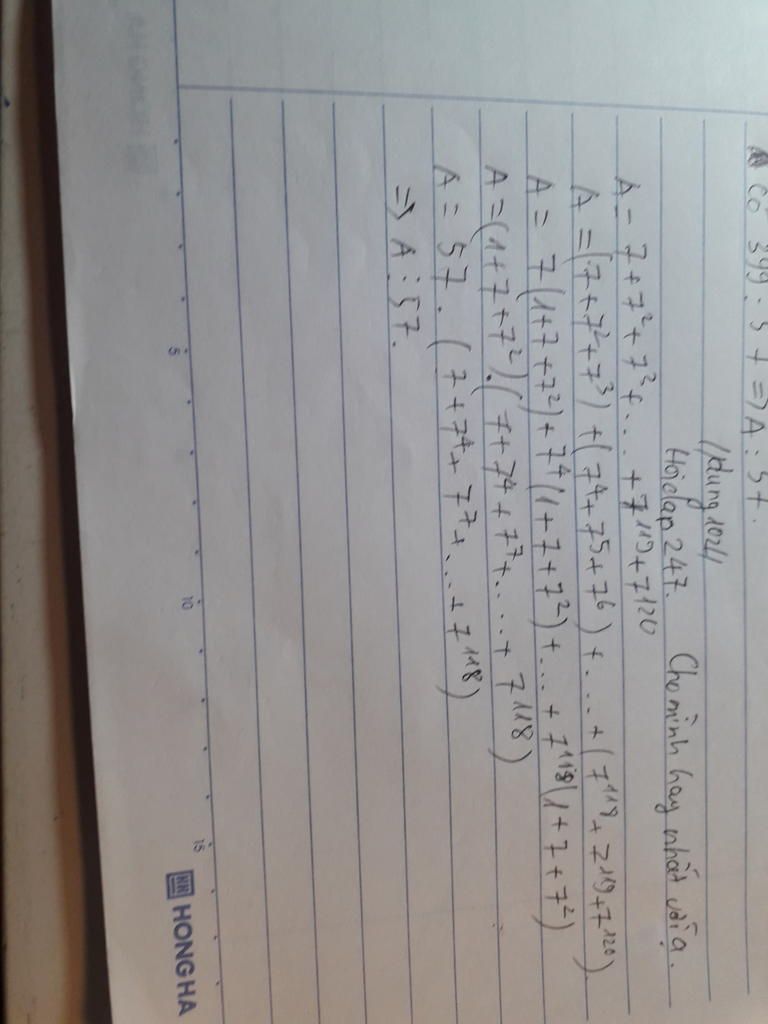 có 399 ⋮ 57 => A ⋮ 57.
//dung1024//
Hoidap247. Cho mình hay nhất với ạ.
A = 7 + 7² + 7³ + ... + 7¹¹⁹ + 7¹²⁰
A = (7 + 7² + 7³) + (7⁴ + 7⁵ + 7⁶) + ... + (7¹¹⁸ + 7¹¹⁹ + 7¹²⁰)
A = 7(1 + 7 + 7²) + 7⁴(1 + 7 + 7²) + ... + 7¹¹⁸(1 + 7 + 7²)
A = (1 + 7 + 7²).(7 + 7⁴ + 7⁷ + ... + 7¹¹⁸)
A = 57 . (7 + 7⁴ + 7⁷ + ... + 7¹¹⁸)
=> A ⋮ 57.
5 10 15
HH HONG HA